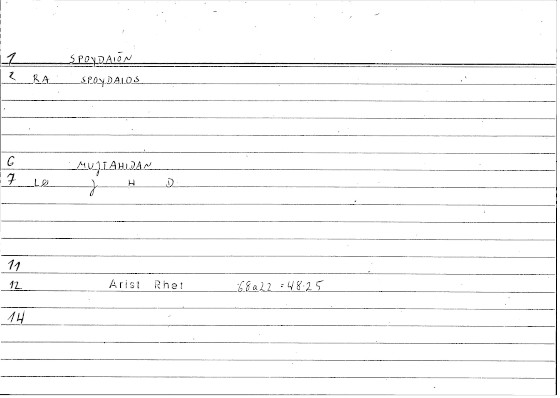 1 SPOYDAIŌN
2 RA SPOYDAIOS
6 MUJTAHIDAN
7 J H D
11
12 Arist Rhet 68a22 = 48.25
14